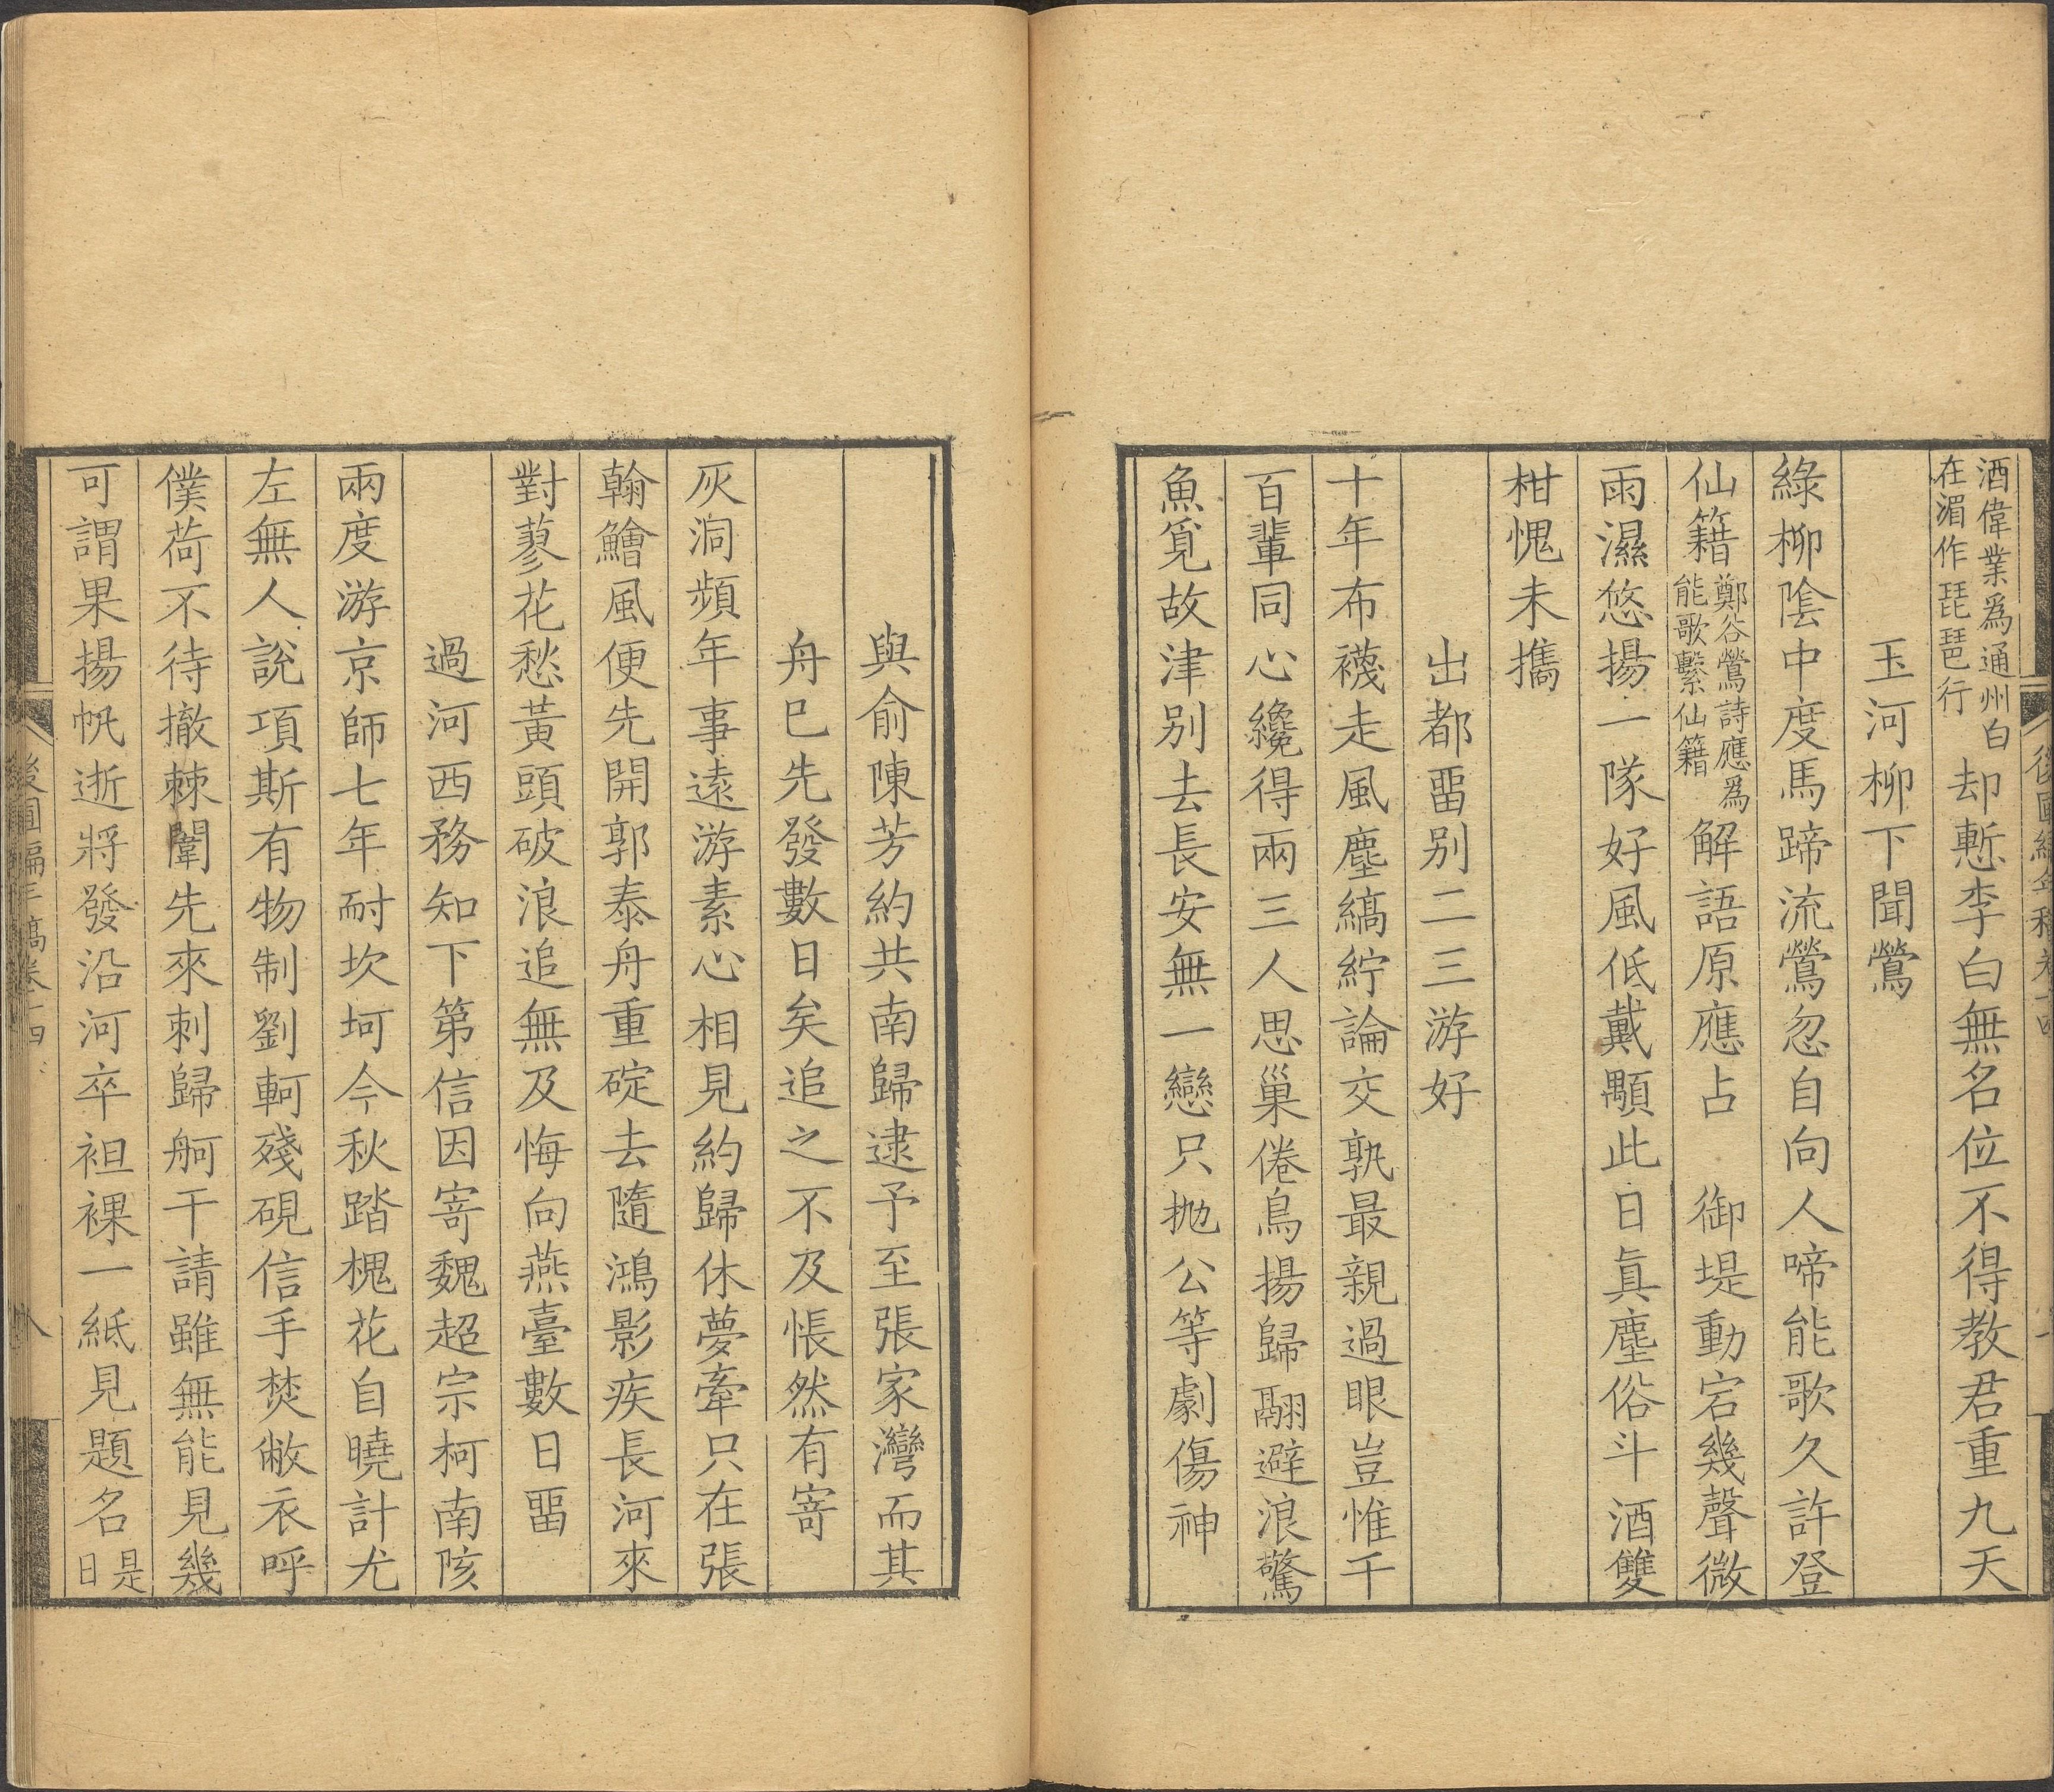 酒偉業爲通州白
在湄作琵琶行
却慙李白無名位不得教君重九天
玉河柳下聞鶯
綠柳陰中度馬蹄流鶯忽自向人啼能歌久許登
仙籍
鄭谷鶯詩應爲
能歌繫仙籍
解語原應占 御堤動宕幾聲微
雨濕悠揚一隊好風低戴顒此日眞塵俗斗酒雙
柑愧未擕
出都畱别二三游好
十年布襪走風塵縞紵論交孰最親過眼豈惟千
百輩同心纔得兩三人思巢倦鳥揚歸翮避浪驚
魚覓故津别去長安無一戀只抛公等劇傷神
與俞陳芳約共南歸逮予至張家灣而其
舟巳先發數日矣追之不及悵然有寄
灰洞頻年事遠游素心相見約歸休夢牽只在張
翰鱠風便先開郭泰舟重碇去隨鴻影疾長河來
對蓼花愁黃頭破浪追無及悔向燕臺數日畱
過河西務知下第信因寄魏超宗柯南陔
兩度游京師七年耐坎坷今秋踏槐花自曉計尤
左無人說項斯有物制劉軻殘硯信手焚敝衣呼
僕荷不待撤棘闈先來刺歸舸干請雖無能見幾
可謂果揚帆逝將發沿河卒袒裸一紙見題名
是
日
後圃編年稿卷十四
八